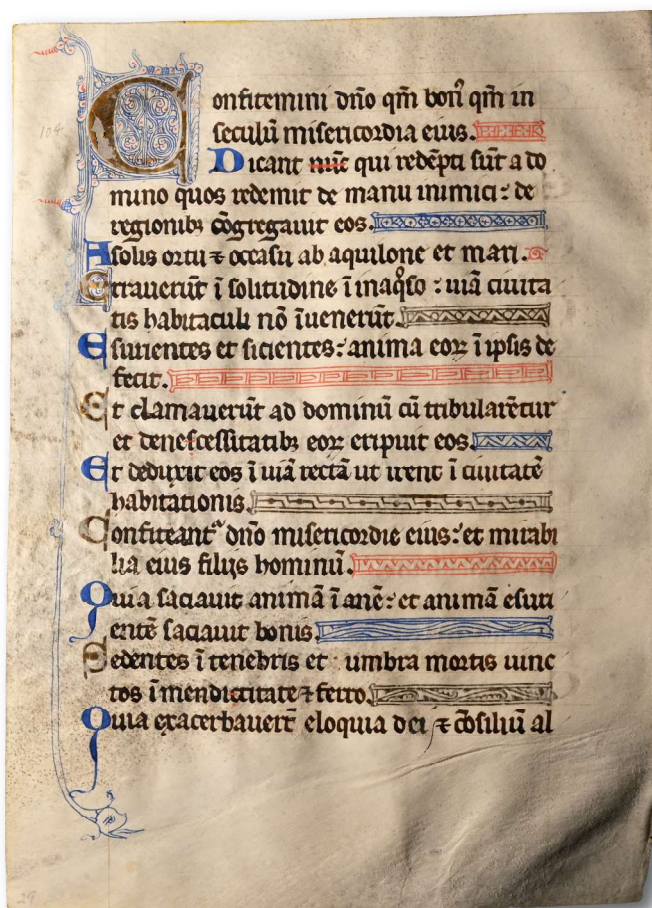 Confitemini dño qm̃ bonꝰ qm̃ in
seculũ misericordia eius.
Dicant nũc qui redẽpti sũt a do
mino quos redemit de manu inimici : de
regionibꝫ cõgregauit eos.
A solis ortu ⁊ occasu ab aquilone et mari.
Errauerũt ĩ solitudine ĩ inaq̊so : uiã ciuita
tis habitaculi nõ ĩuenerũt.
Esurientes et sicientes : anima eoꝝ ĩ ipsis de
fecit.
Et clamauerũt ad dominũ cũ tribularẽtur
et denescessitatibꝫ eoꝝ eripuit eos.
Et deduxit eos ĩ uiã rectã ut irent ĩ ciuitatẽ
habitationis.
Confiteant᷑ dño misericordie eius : et mirabi
lia eius filijs hominũ.
Quia saciauit animã ĩanẽ : et animã esuri
entẽ saciauit bonis.
Sedentes ĩ tenebris et umbra mortis uinc
tos ĩ mendicitate ⁊ ferro.
Quia exacerbauerũt eloquia dei ⁊ cõsiliũ al
104
29